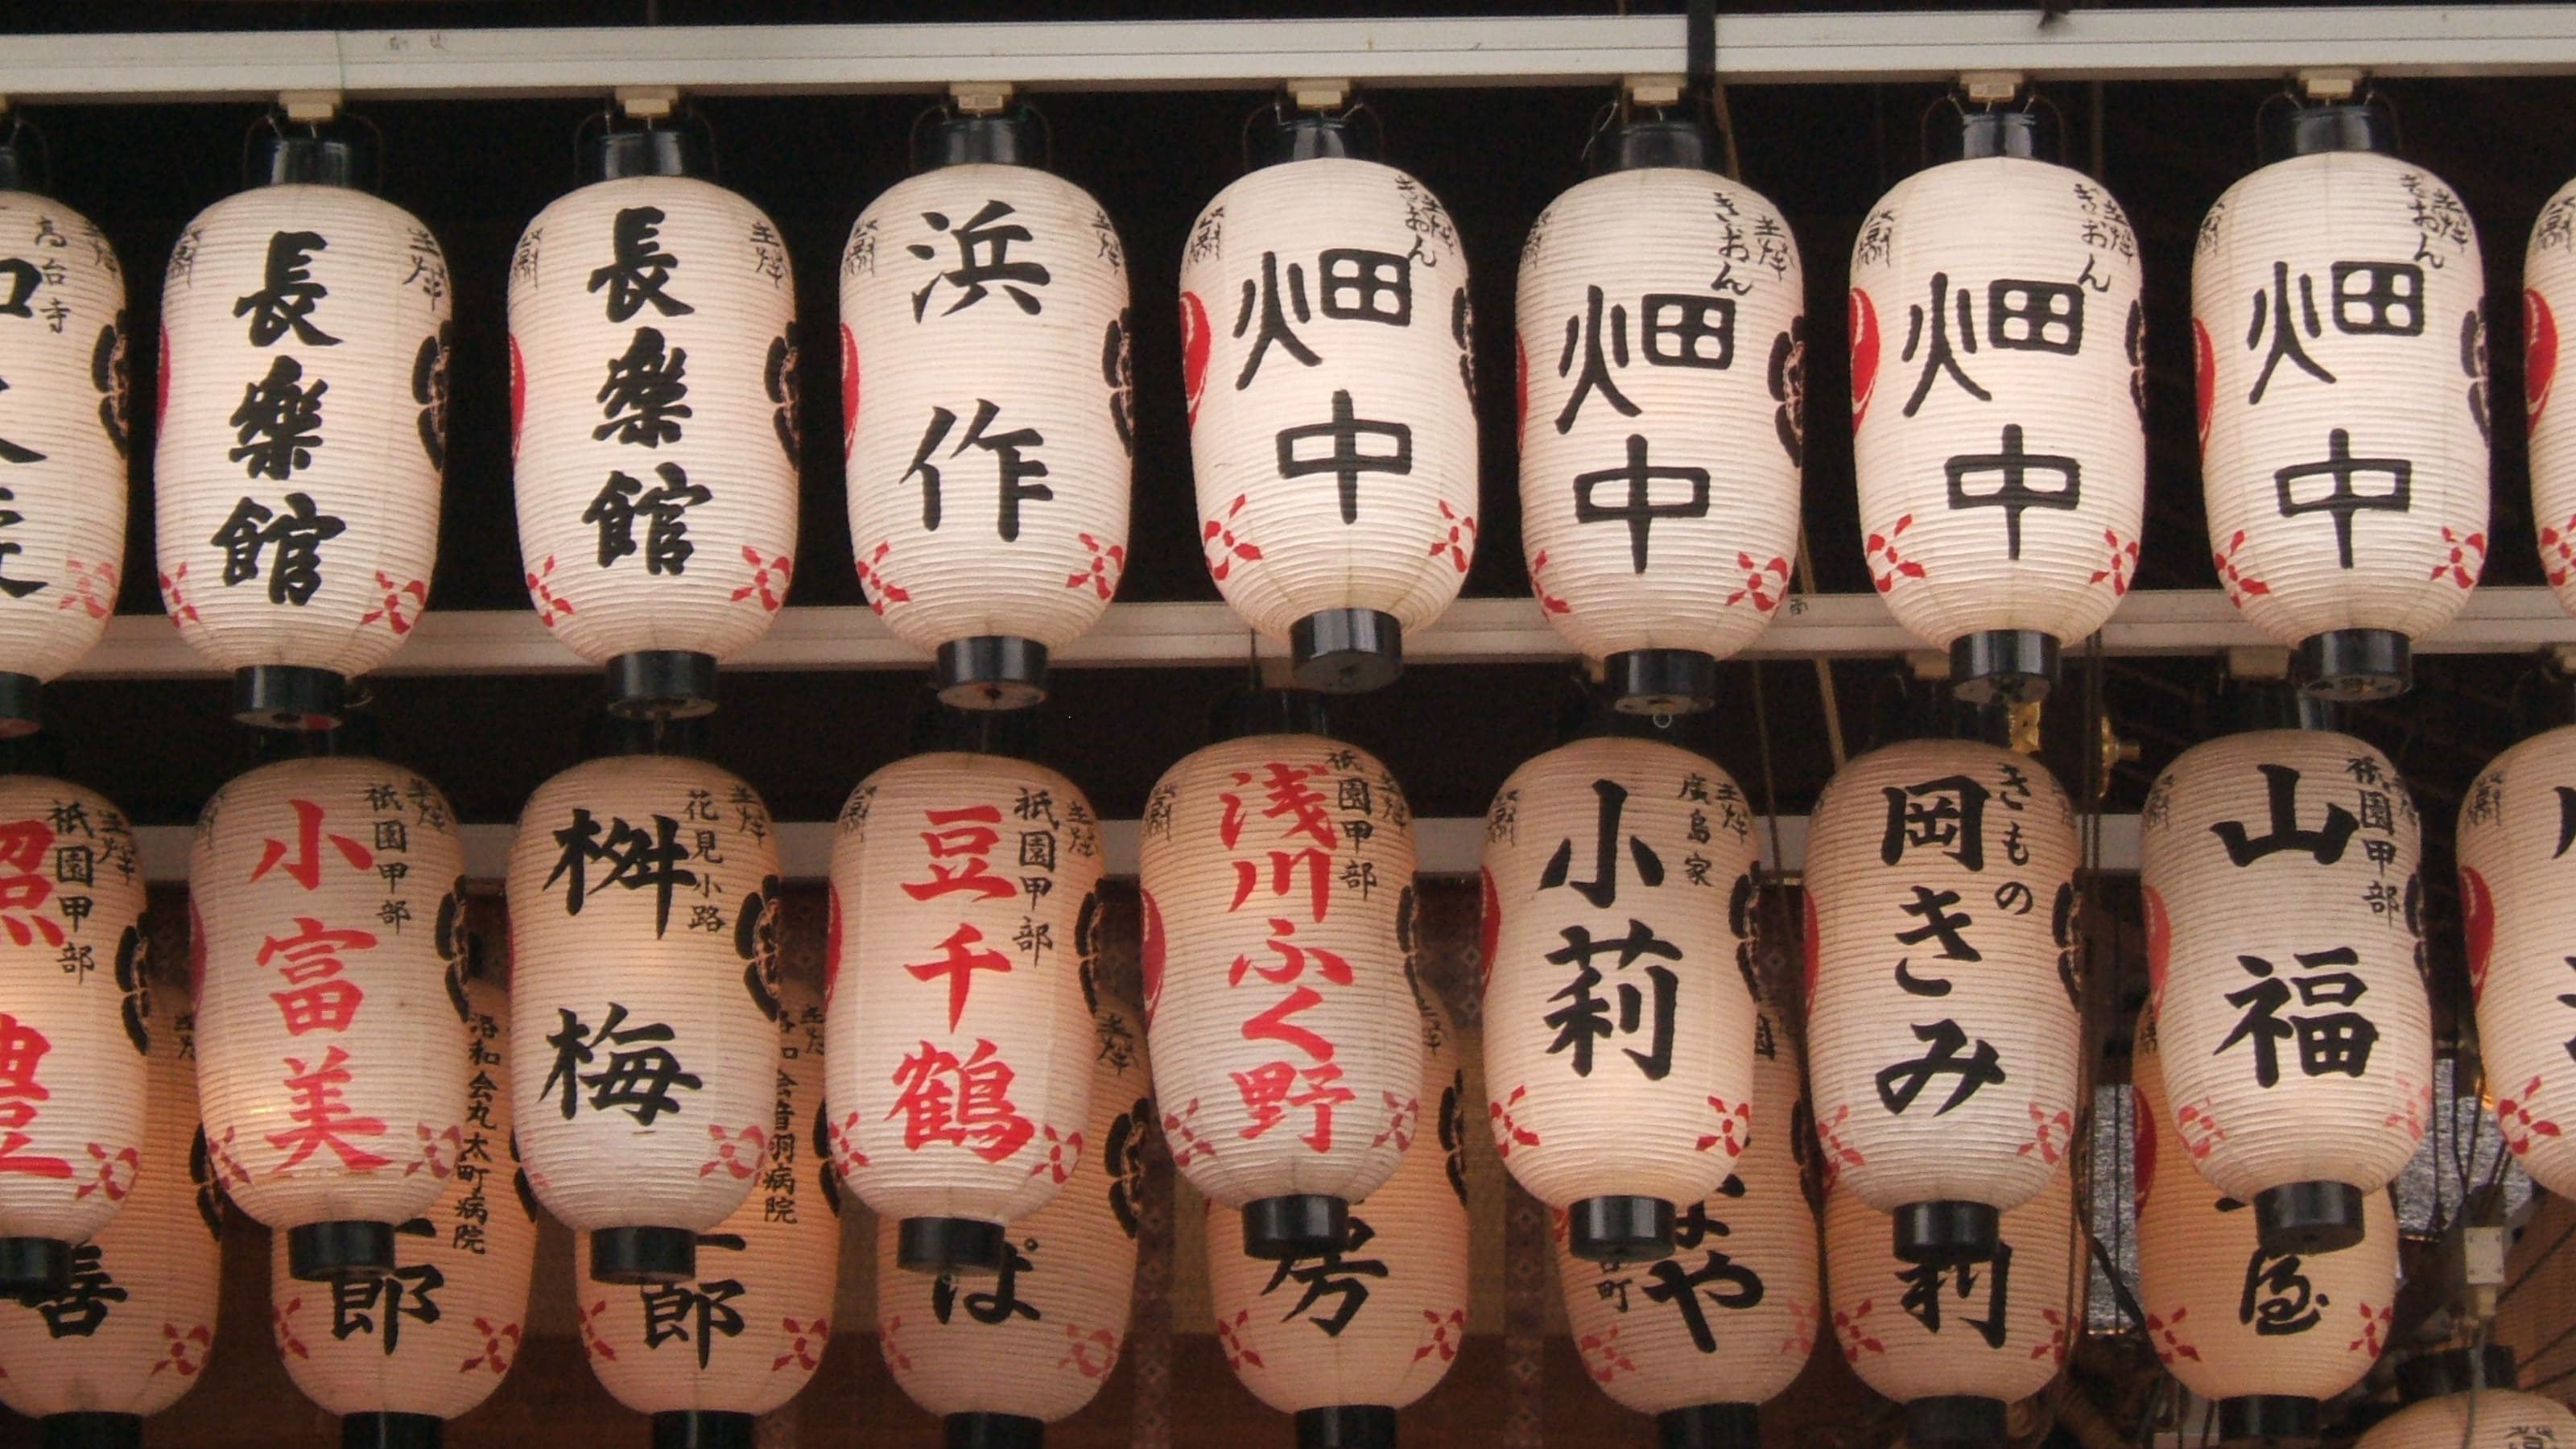 高台寺
長楽館
長楽館
浜作
ぎおん
畑中
ぎおん
畑中
ぎおん
畑中
ぎおん
畑中
祇園甲部
祇園甲部
小富美
花見小路
桝梅
祇園甲部
豆千鶴
祇園甲部
浅川ふく野
廣島家
小莉
きもの
岡きみ
祇園甲部
山福
喜
洛和会丸太町病院
郎
会音羽病院
郎
ぽ
房
や
莉
屋